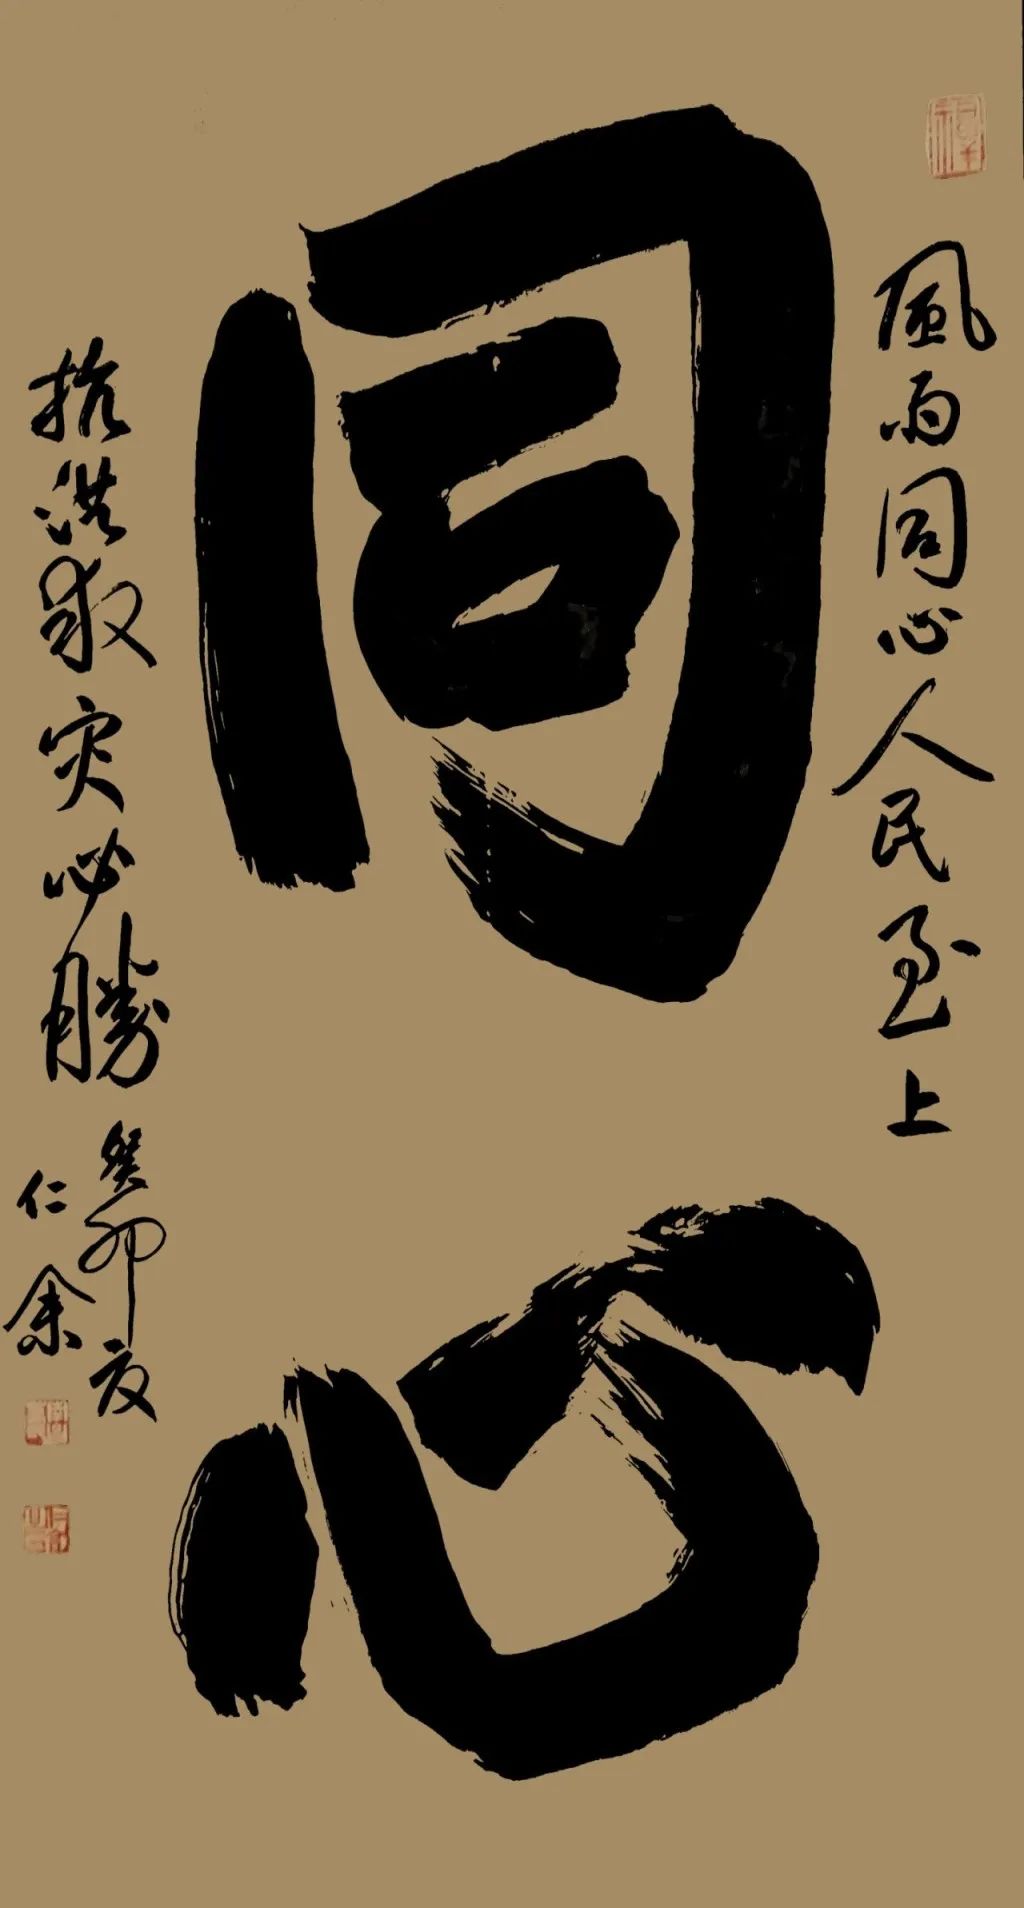 風雨同心人民至上
同心
抗洪救灾必勝
癸卯夏
仁余